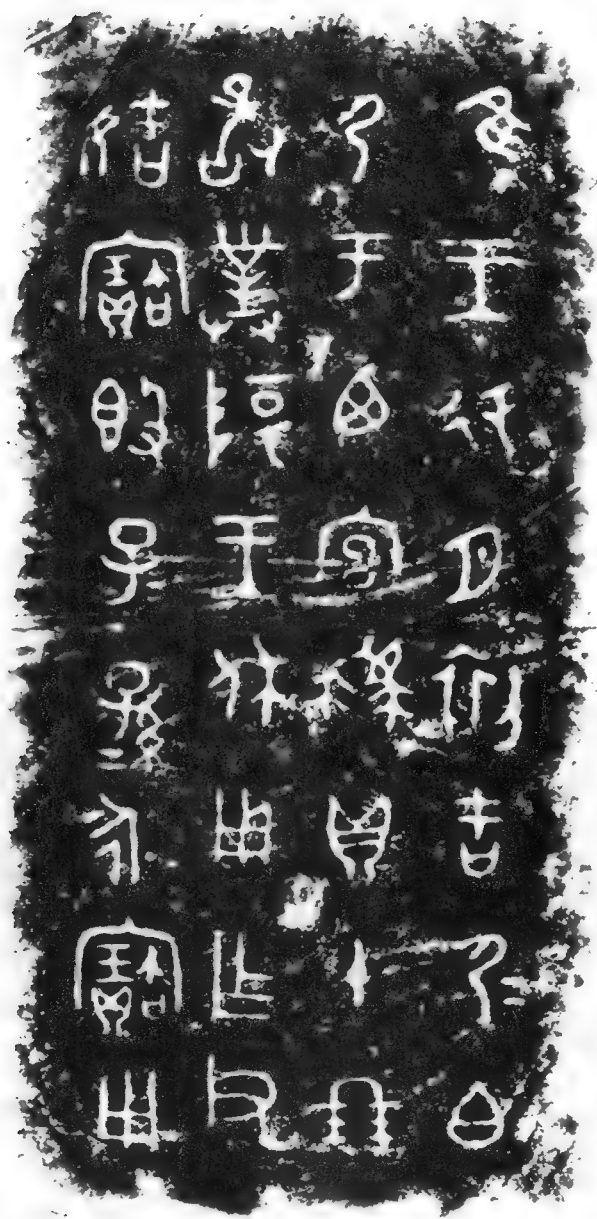 隹王征月初吉尸白
尸于西宫貝十朋
敢對陽王休用乍尹
姞寶𣪘子孫永寶用